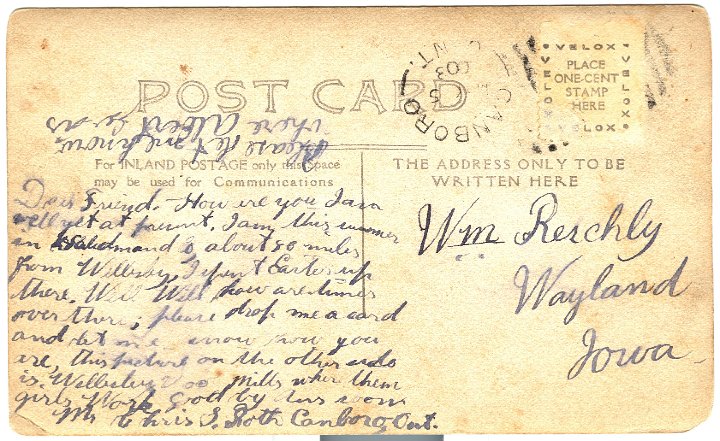 POST CARD
CANBORO
ONT.
VELOX
PLACE
ONE-CENT
STAMP
HERE
VELOX
VELOX
VELOX
Please let me know
where Albert
For INLAND POSTAGE only this Space
may be used for Communications
THE ADDRESS ONLY TO BE
WRITTEN HERE
Dear Friend. How are you I am
well yet at present. I am this summer
in is about 80 miles
from Wellesley I spent Easter up
there. Well Will how are times
over there; please drop me a card
and let me know how you
are, this picture on the other side
is Wellesley Mills where them
girls Work Good by
Mr Chris S. Roth Canboro, Ont.
Wm Reschly
Wayland
Iowa